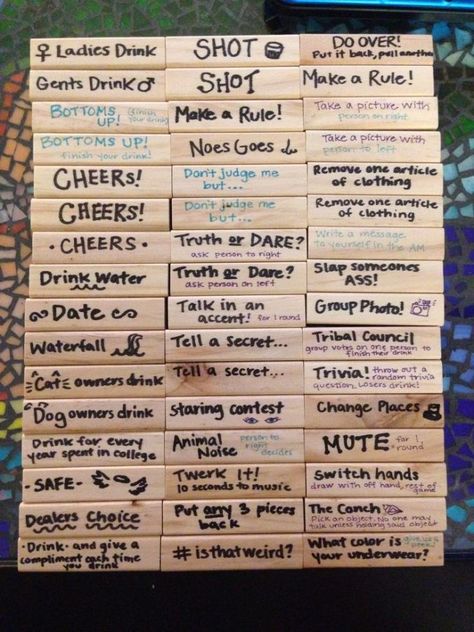 ♀ Ladies Drink
SHOT
DO OVER!
Put it back, pull another
Gents Drink ♂
SHOT
Make a Rule!
BOTTOMS UP! (finish your drink)
Make a Rule!
Take a picture with
person on right
BOTTOMS UP!
finish your drink!
Noes Goes
Take a picture with
person to left
CHEERS!
Don't judge me
but...
Remove one article
of clothing
CHEERS!
Don't judge me
but...
Remove one article
of clothing
• CHEERS •
Truth or DARE?
ask person to right
Write a message
to yourself in the AM
Drink Water
Truth or Dare?
ask person on left
Slap someones
ASS!
Date
Talk in an
accent! for 1 round
Group Photo!
Waterfall
Tell a secret...
Tribal Council
group votes on one person to
finish their drink
Cat owners drink
Tell a secret...
Trivia! throw out a
random trivia
question. Losers drink!
Dog owners drink
staring contest
Change Places
Drink for every
year spent in college
Animal
Noise
person to
right
decides
MUTE for 1
round
- SAFE -
Twerk It!
10 seconds to music
Switch hands
draw with off hand, rest of
game
Dealers Choice
Put any 3 pieces
back
The Conch
Pick an object. No one may
talk unless holding said object
• Drink • and give a
compliment each time
you drink
# is that weird?
What color is
your underwear?